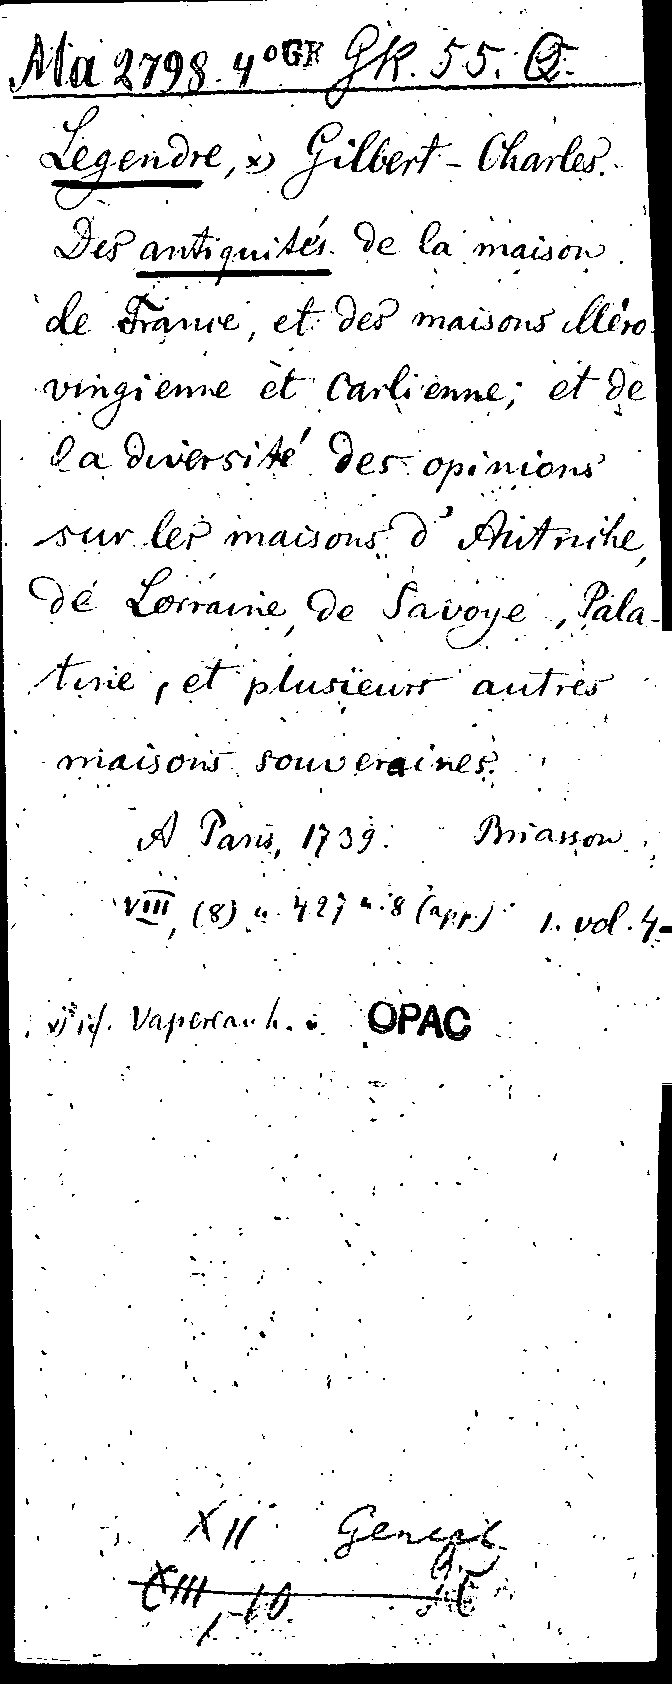 Ma 2798. 4° GK Gk. 55. Q.
Legendre, x) Gilbert-Charles.
Des antiquités de la maison
de France, et des maisons Méro-
vingienne et Carlienne; et de
la diversité des opinions
sur les maisons d'Autriche,
de Lorraine, de Savoye, Pala-
tine, et plusieurs autres
maisons souveraines.
A Paris, 1739. Briasson.
VIII, (8) u. 427 u. 8 (app.) 1. vol. 4-
x) id. Vapereau h. OPAC
XII Geneal
XIII, 10